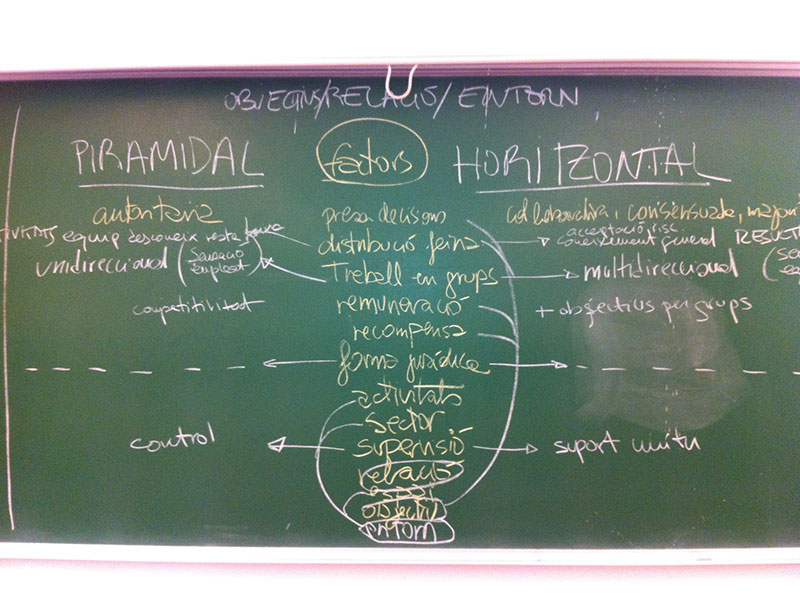 OBJECTIUS/RELACIÓ/ENTORN
PIRAMIDAL factors HORITZONTAL
autoritaria presa decisions col·laborativa, consensuada,
equip desconeix resta distribució feina acceptació risc
coneixement general
unidireccional Treball en grups multidireccional
competitilitat remuneració + objectius per grups
recompensa
forma jurídica
activitats
Sector
control supervisió suport mutu
relació
objectiu
entorn